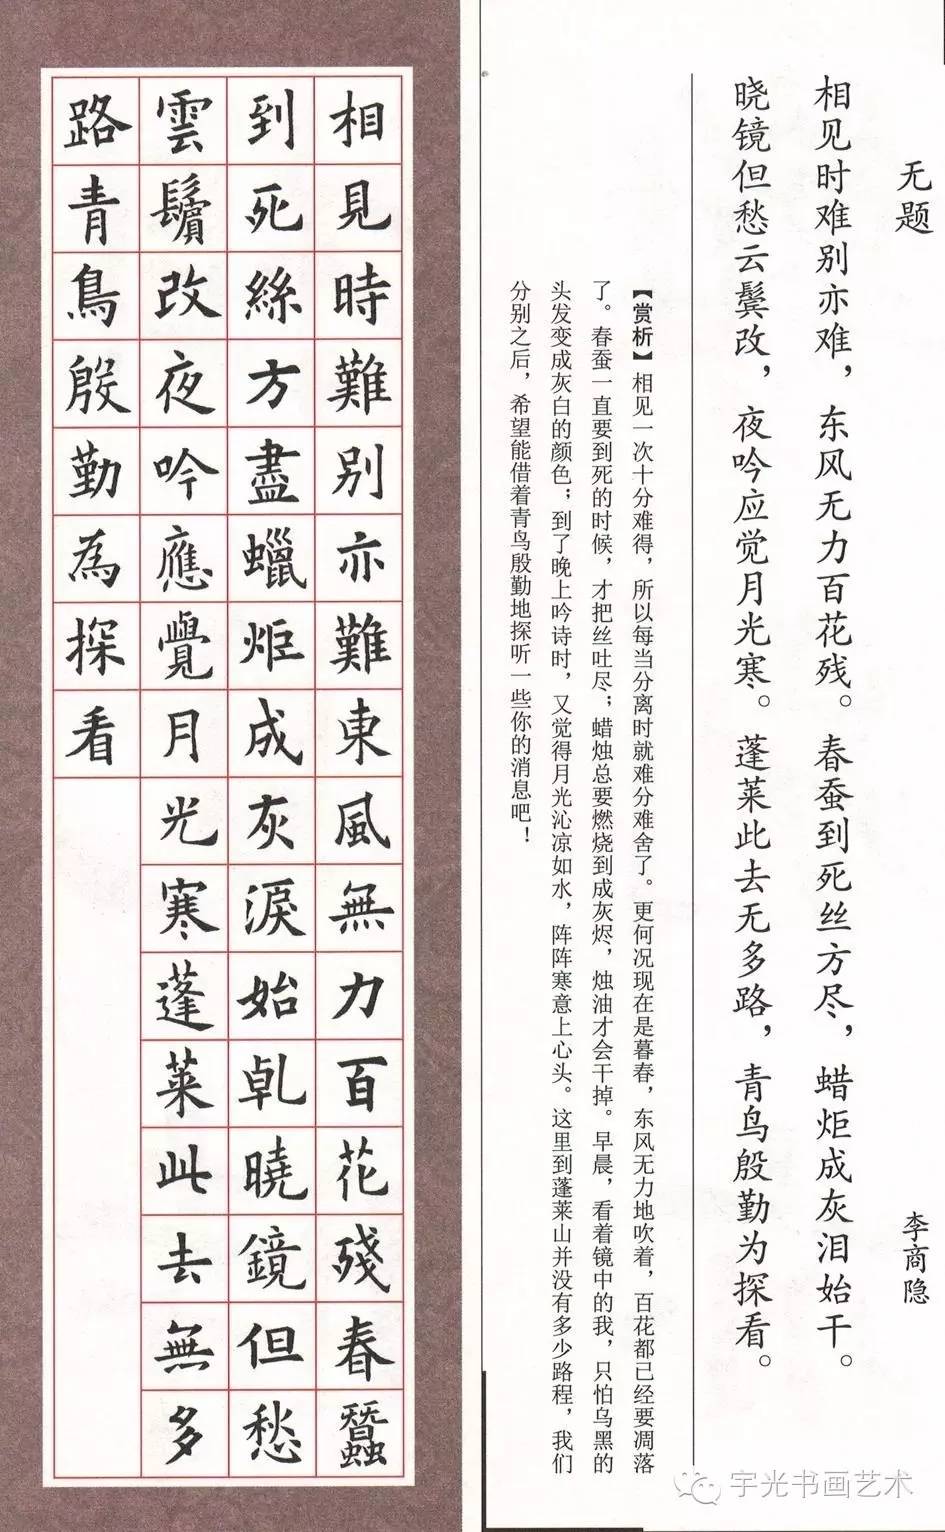 无题
李商隐
相见时难别亦难，东风无力百花残。春蚕到死丝方尽，蜡炬成灰泪始干。
晓镜但愁云鬓改，夜吟应觉月光寒。蓬莱此去无多路，青鸟殷勤为探看。
【赏析】相见一次十分难得，所以每当分离时就难分难舍了。更何况现在是暮春，东风无力地吹着，百花都已经要凋落
了。春蚕一直要到死的时候，才把丝吐尽；蜡烛总要燃烧到成灰烬，烛油才会干掉。早晨，看着镜中的我，只怕乌黑的
头发变成灰白的颜色；到了晚上吟诗时，又觉得月光沁凉如水，阵阵寒意上心头。这里到蓬莱山并没有多少路程，我们
分别之后，希望能借着青鸟殷勤地探听一些你的消息吧！
相見時難別亦難東風無力百花殘春蠶
到死絲方盡蠟炬成灰淚始乾曉鏡但愁
雲鬢改夜吟應覺月光寒蓬萊此去無多
路青鳥殷勤為探看
宇光书画艺术